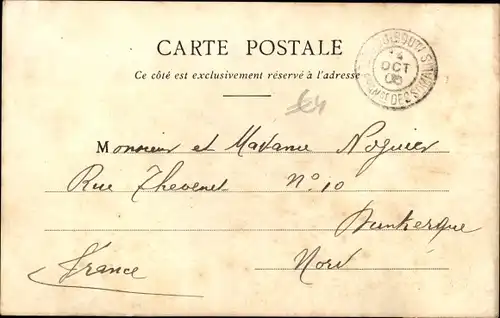 CARTE POSTALE
Ce côté est exclusivement réservé à l'adresse
DJIBOUTI
14
OCT
05
64
Monsieur et Madame Noguier
Rue Thevenet N° 10
Dunkerque
France Nord